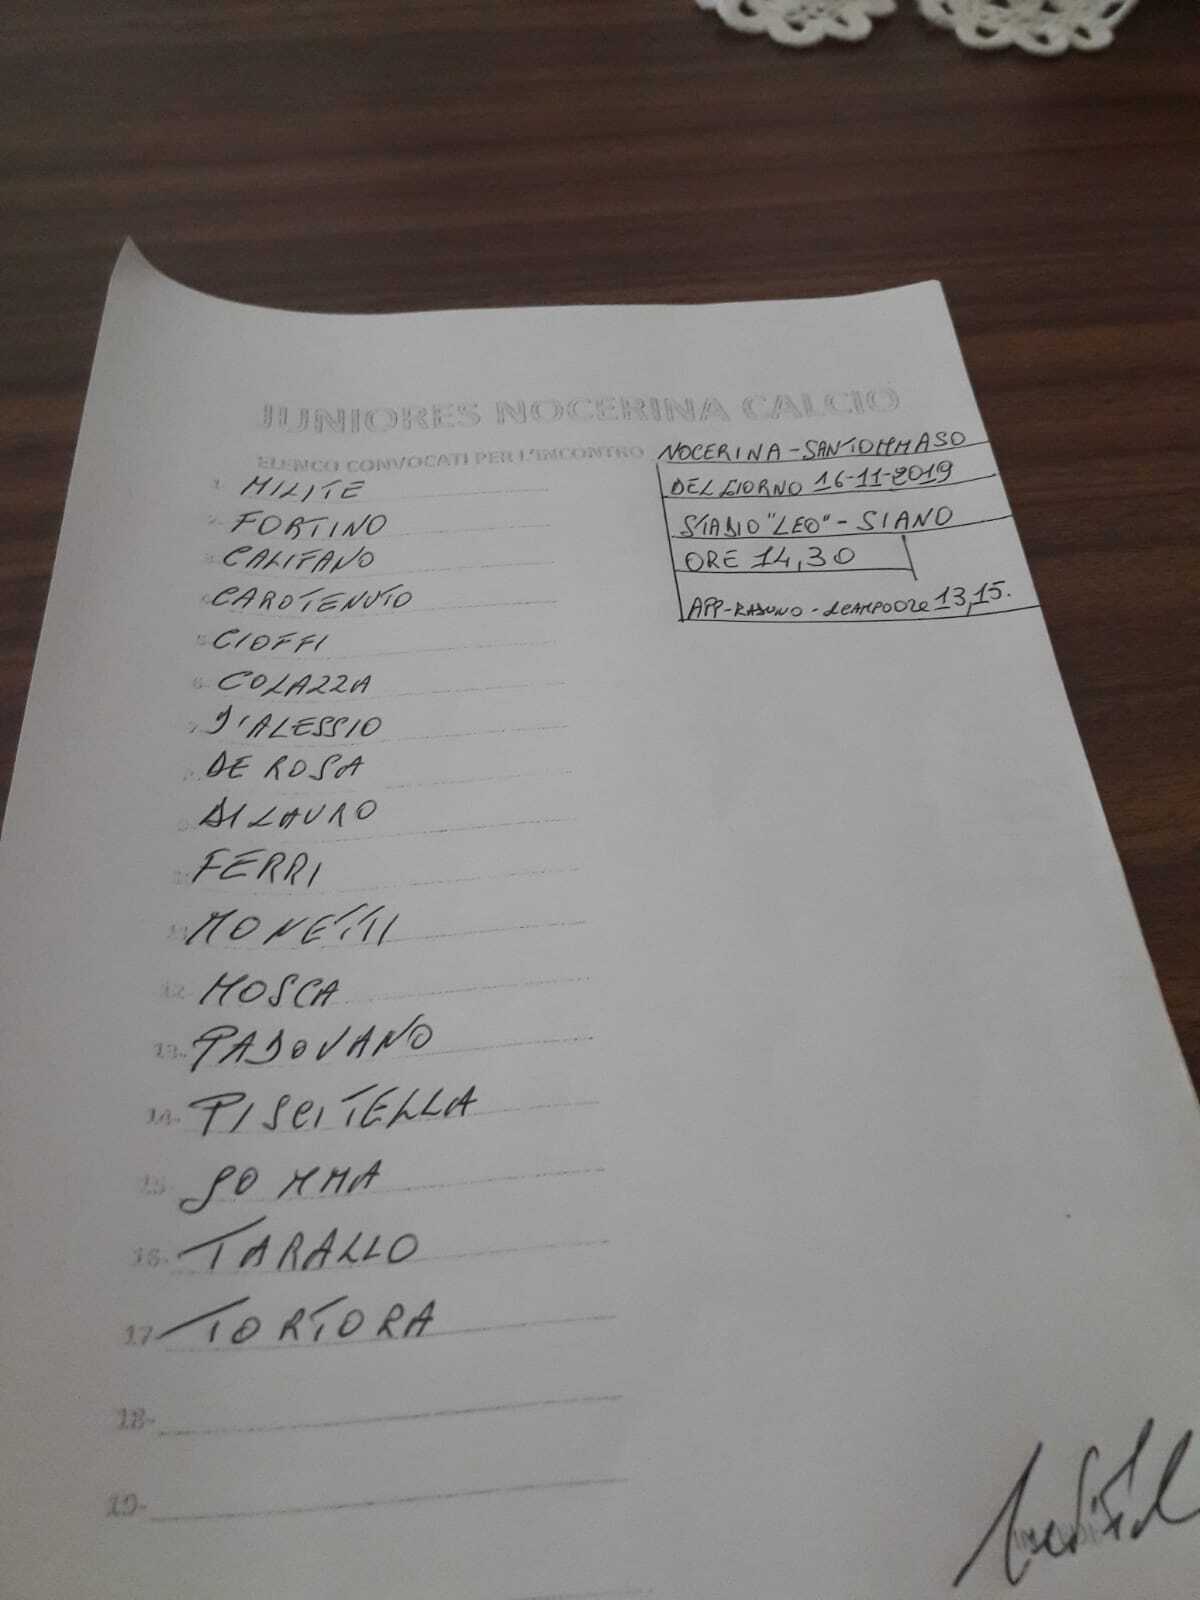 JUNIORES NOCERINA CALCIO
ELENCO CONVOCATI PER L'INCONTRO NOCERINA - SANTOMMASO
DEL GIORNO 16-11-2019
STADIO "LEO" - SIANO
ORE 14,30
APP-RADUNO - 13,15.
1- MILITE
2- FORTINO
3- CALIFANO
4- CAROTENUTO
5- CIOFFI
6- COLAZZA
7- D'ALESSIO
8- DE ROSA
9- DI LAURO
10- FERRI
11- MONETTI
12- MOSCA
13- PADOVANO
14- PISCITELLA
15- SOMMA
16- TARALLO
17- TORTORA
18-
19-